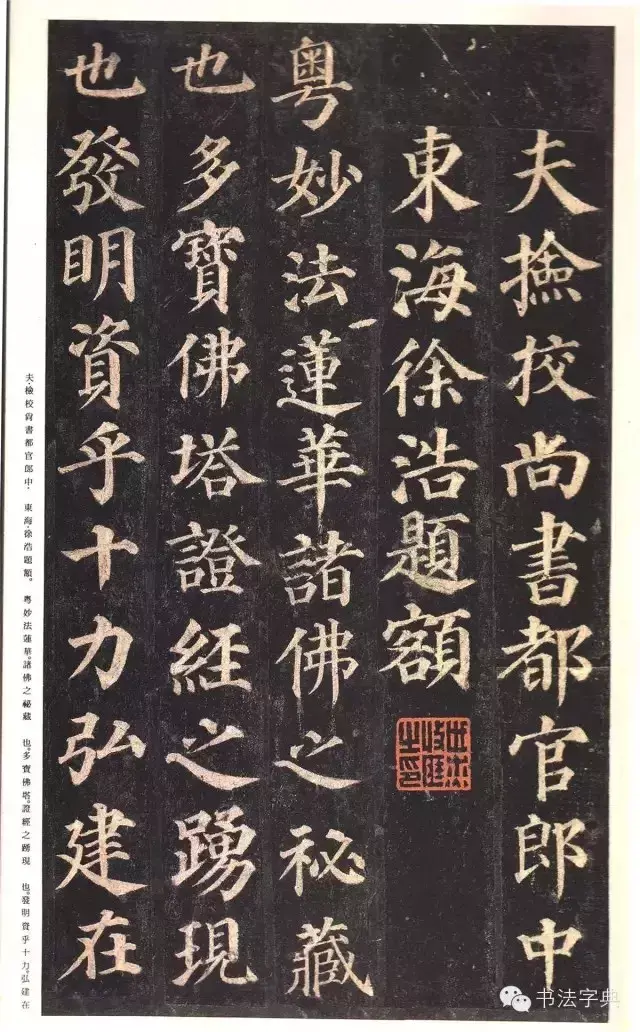 夫撿校尚書都官郎中
東海徐浩題額
粵妙法蓮華諸佛之祕藏
也多寶佛塔證經之踴現
也發明資乎十力弘建在
夫檢校尚書都官郎中 東海徐浩題額。 粵妙法蓮華。諸佛之祕藏 也。多寶佛塔。證經之踴現 也。發明資乎十力。弘建在
书法字典